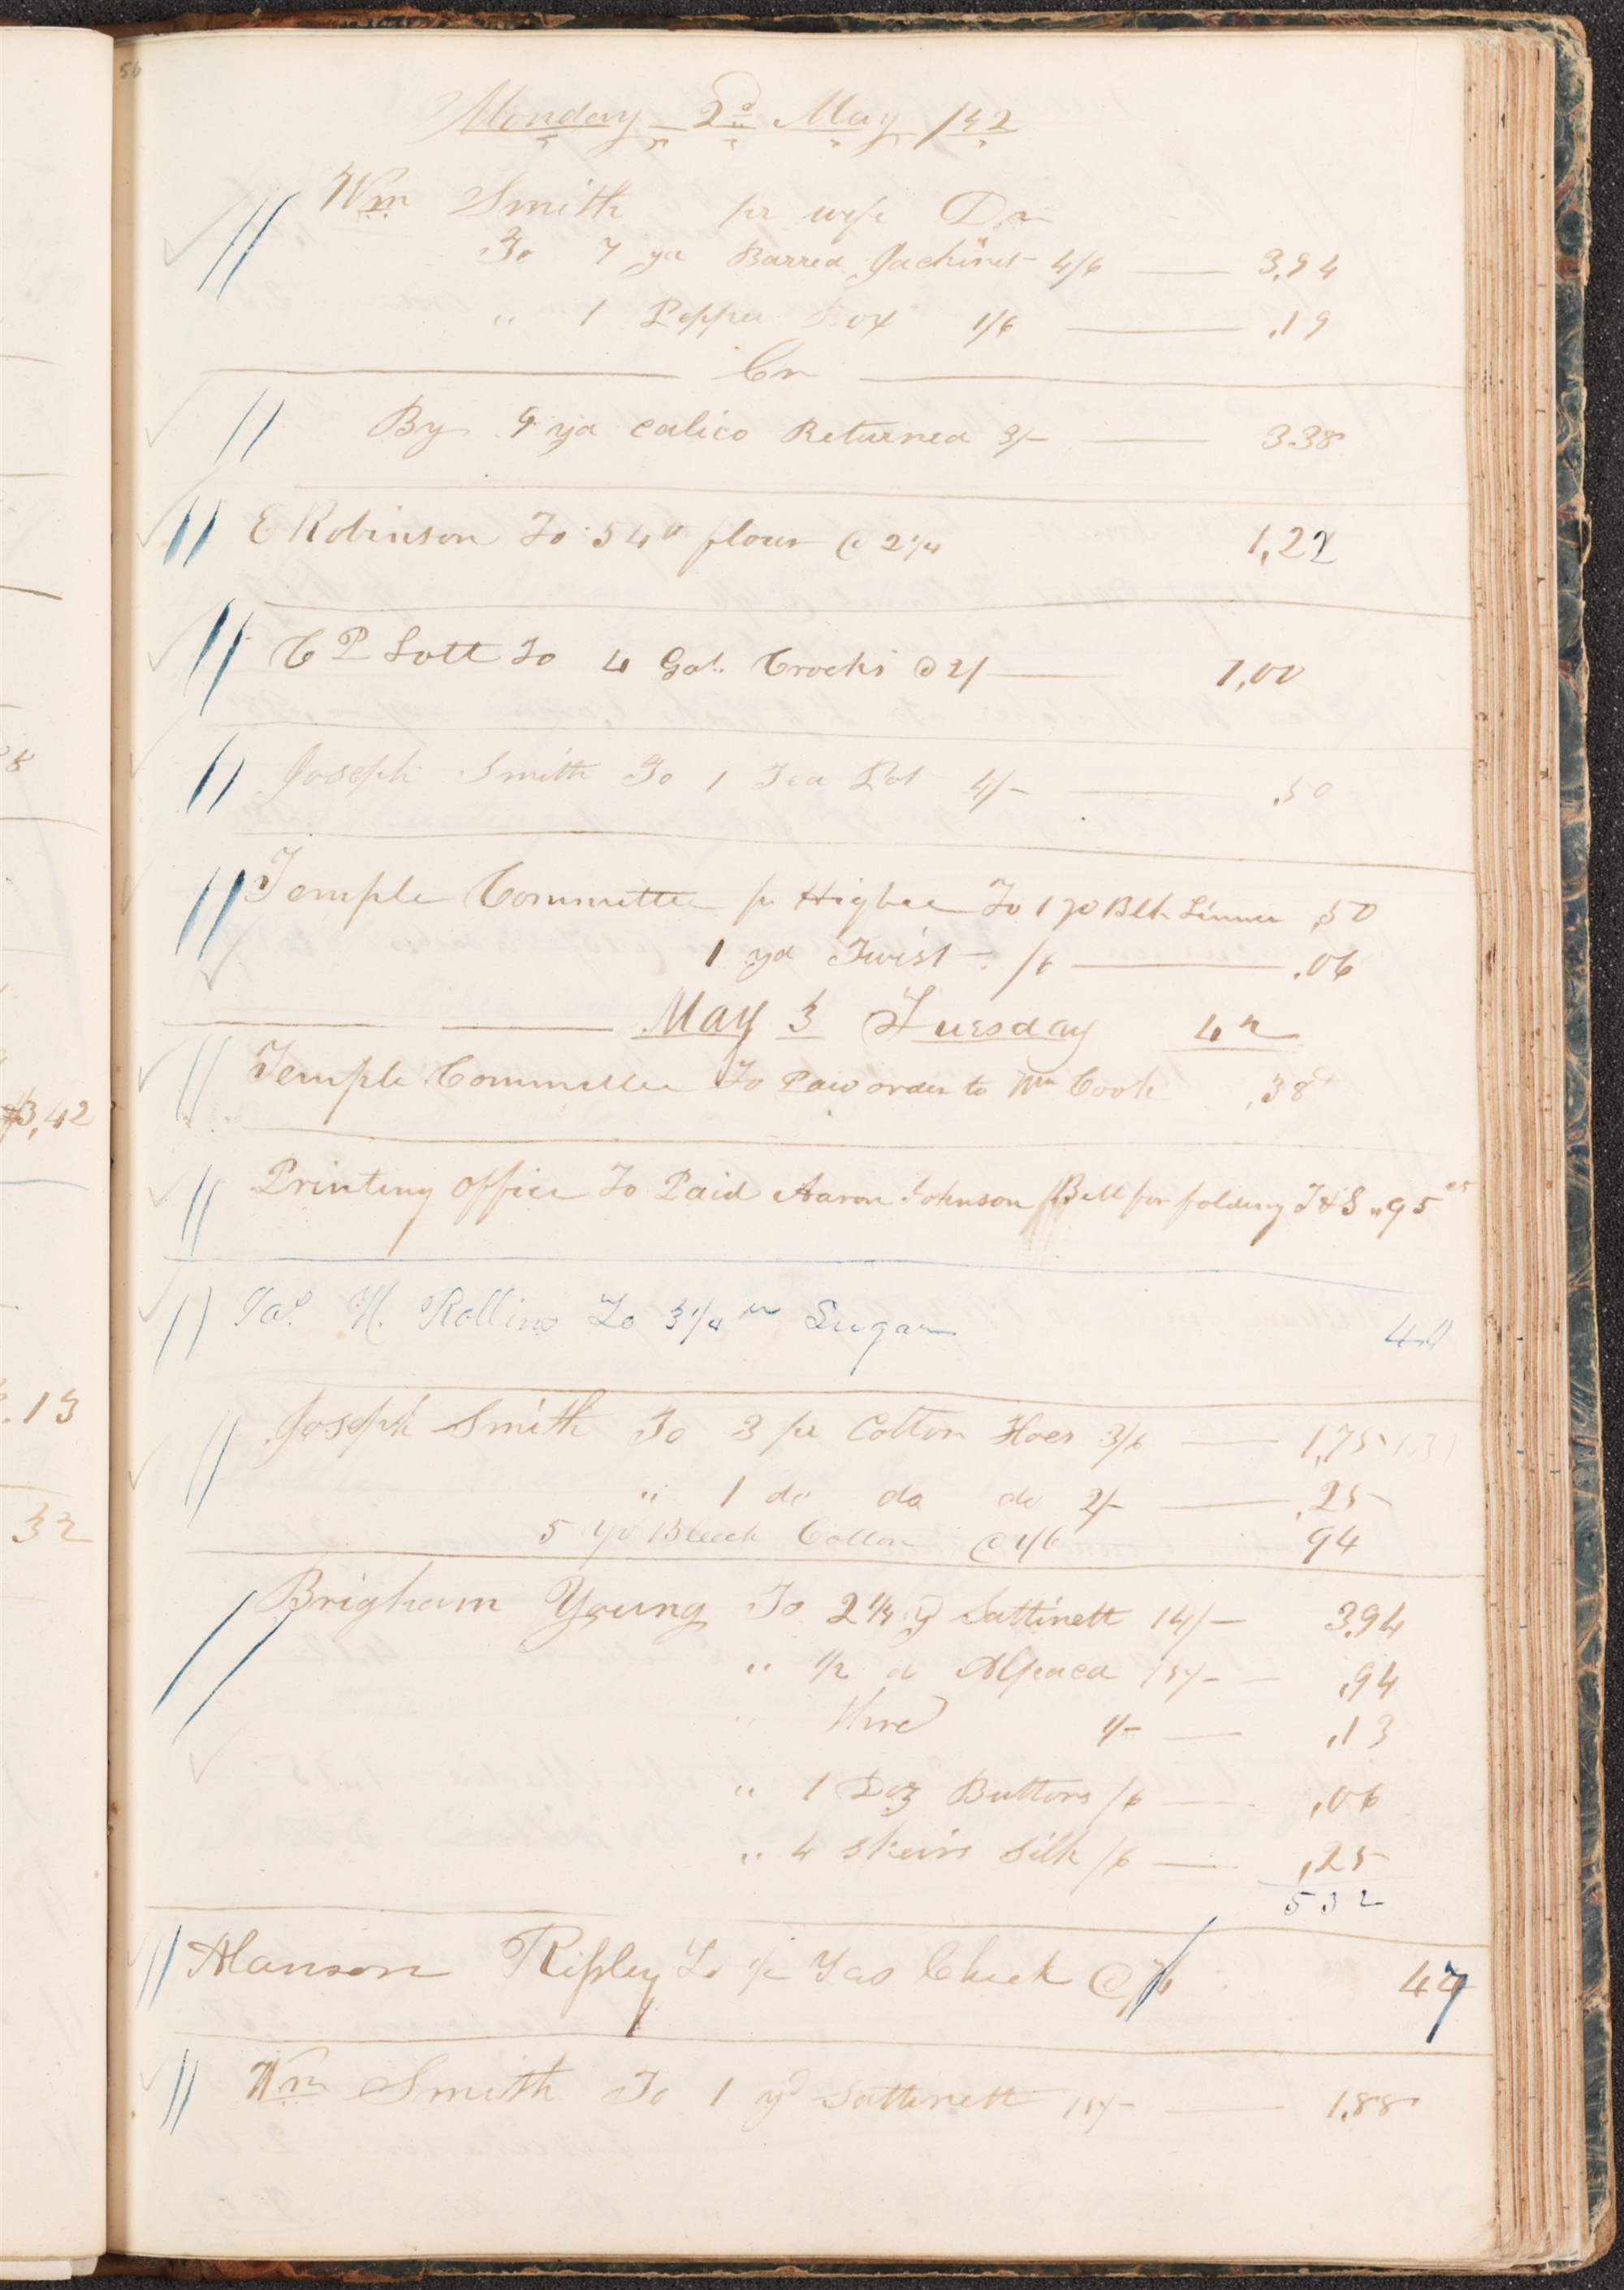 56
Monday 2d May /42
Wm Smith pr wife Dr
To 7 yd Barred Jackinet 4/6 3.94
" 1 Pepper Box 1/6 .19
Cr
By 9 yd calico Returned 3/- 3.38
E Robinson To 54 lb flour @ 2 1/4 1,22
C P Lott To 4 Gal. Crocks @ 2/ 1,00
Joseph Smith To 1 Tea Pot 4/- .50
Temple Committee pr Higbee To 1 yd Blk Linnen ,50
1 yd Twist - /6 .06
May 3 Tuesday 42
Temple Committee To Paid order to Wm Cook ,38
Printing office To Paid Aaron Johnson Bill for folding T&S "95 cts
Jas. H. Rollins To 3 1/4 lb Sugar
Joseph Smith To 3 pr Cotton Hoes 3/6 1,75
" 1 do do do 2/- ,25
5 yd Bleach Cotton @ 1/6 94
Brigham Young To 2 1/4 yd Sattinett 14/- 3.94
" 1/2 d Alpaca 15/- ,94
" thred 1/- ,13
" 1 Doz Buttons /6 ,06
" 4 skeins silk /6 ,25
5 32
Alanson Ripley To Check @ 47
Wm Smith To 1 yd Sattinett 15/- 1.88
28
$3,42
.13
32